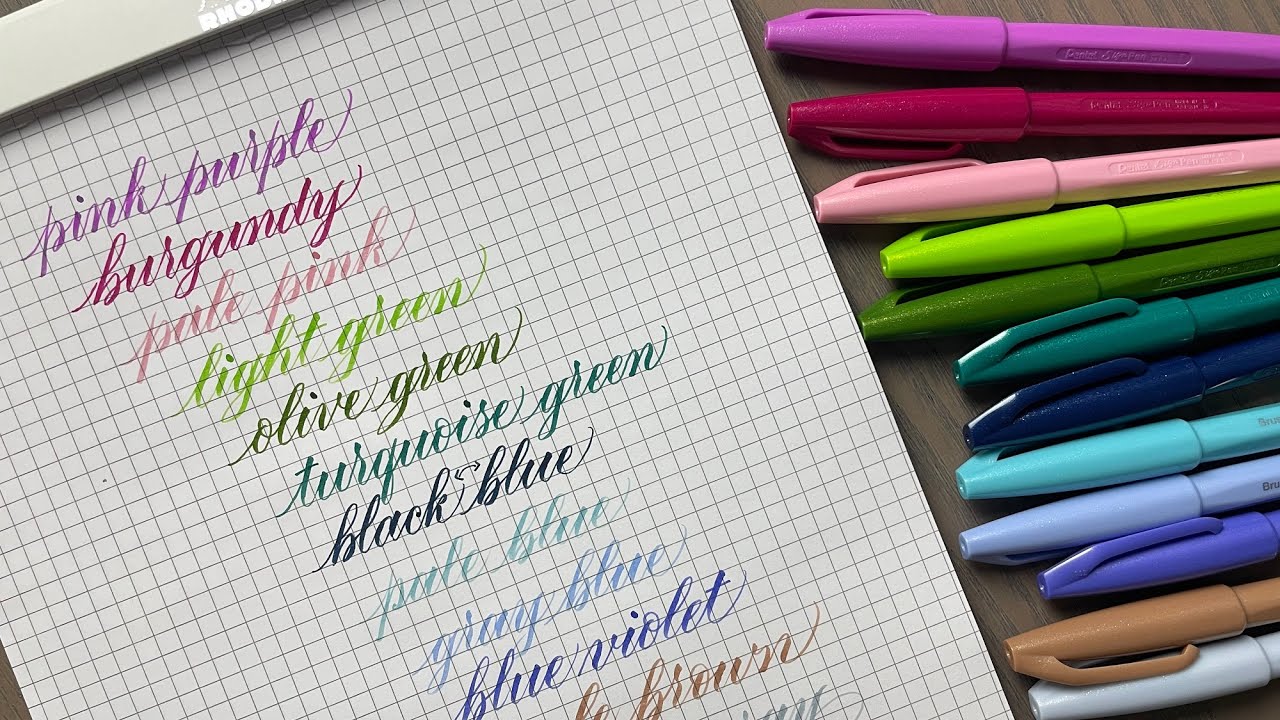 pink purple
burgundy
pale pink
light green
olive green
turquoise green
black blue
pale blue
gray blue
blue violet
brown
Pentel Sign Pen
Pentel Sign Pen
Pentel Sign Pen
Pentel Sign Pen